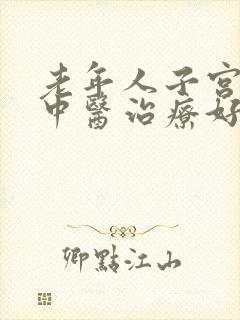 老年人子宮
中醫治療好
卿點江山